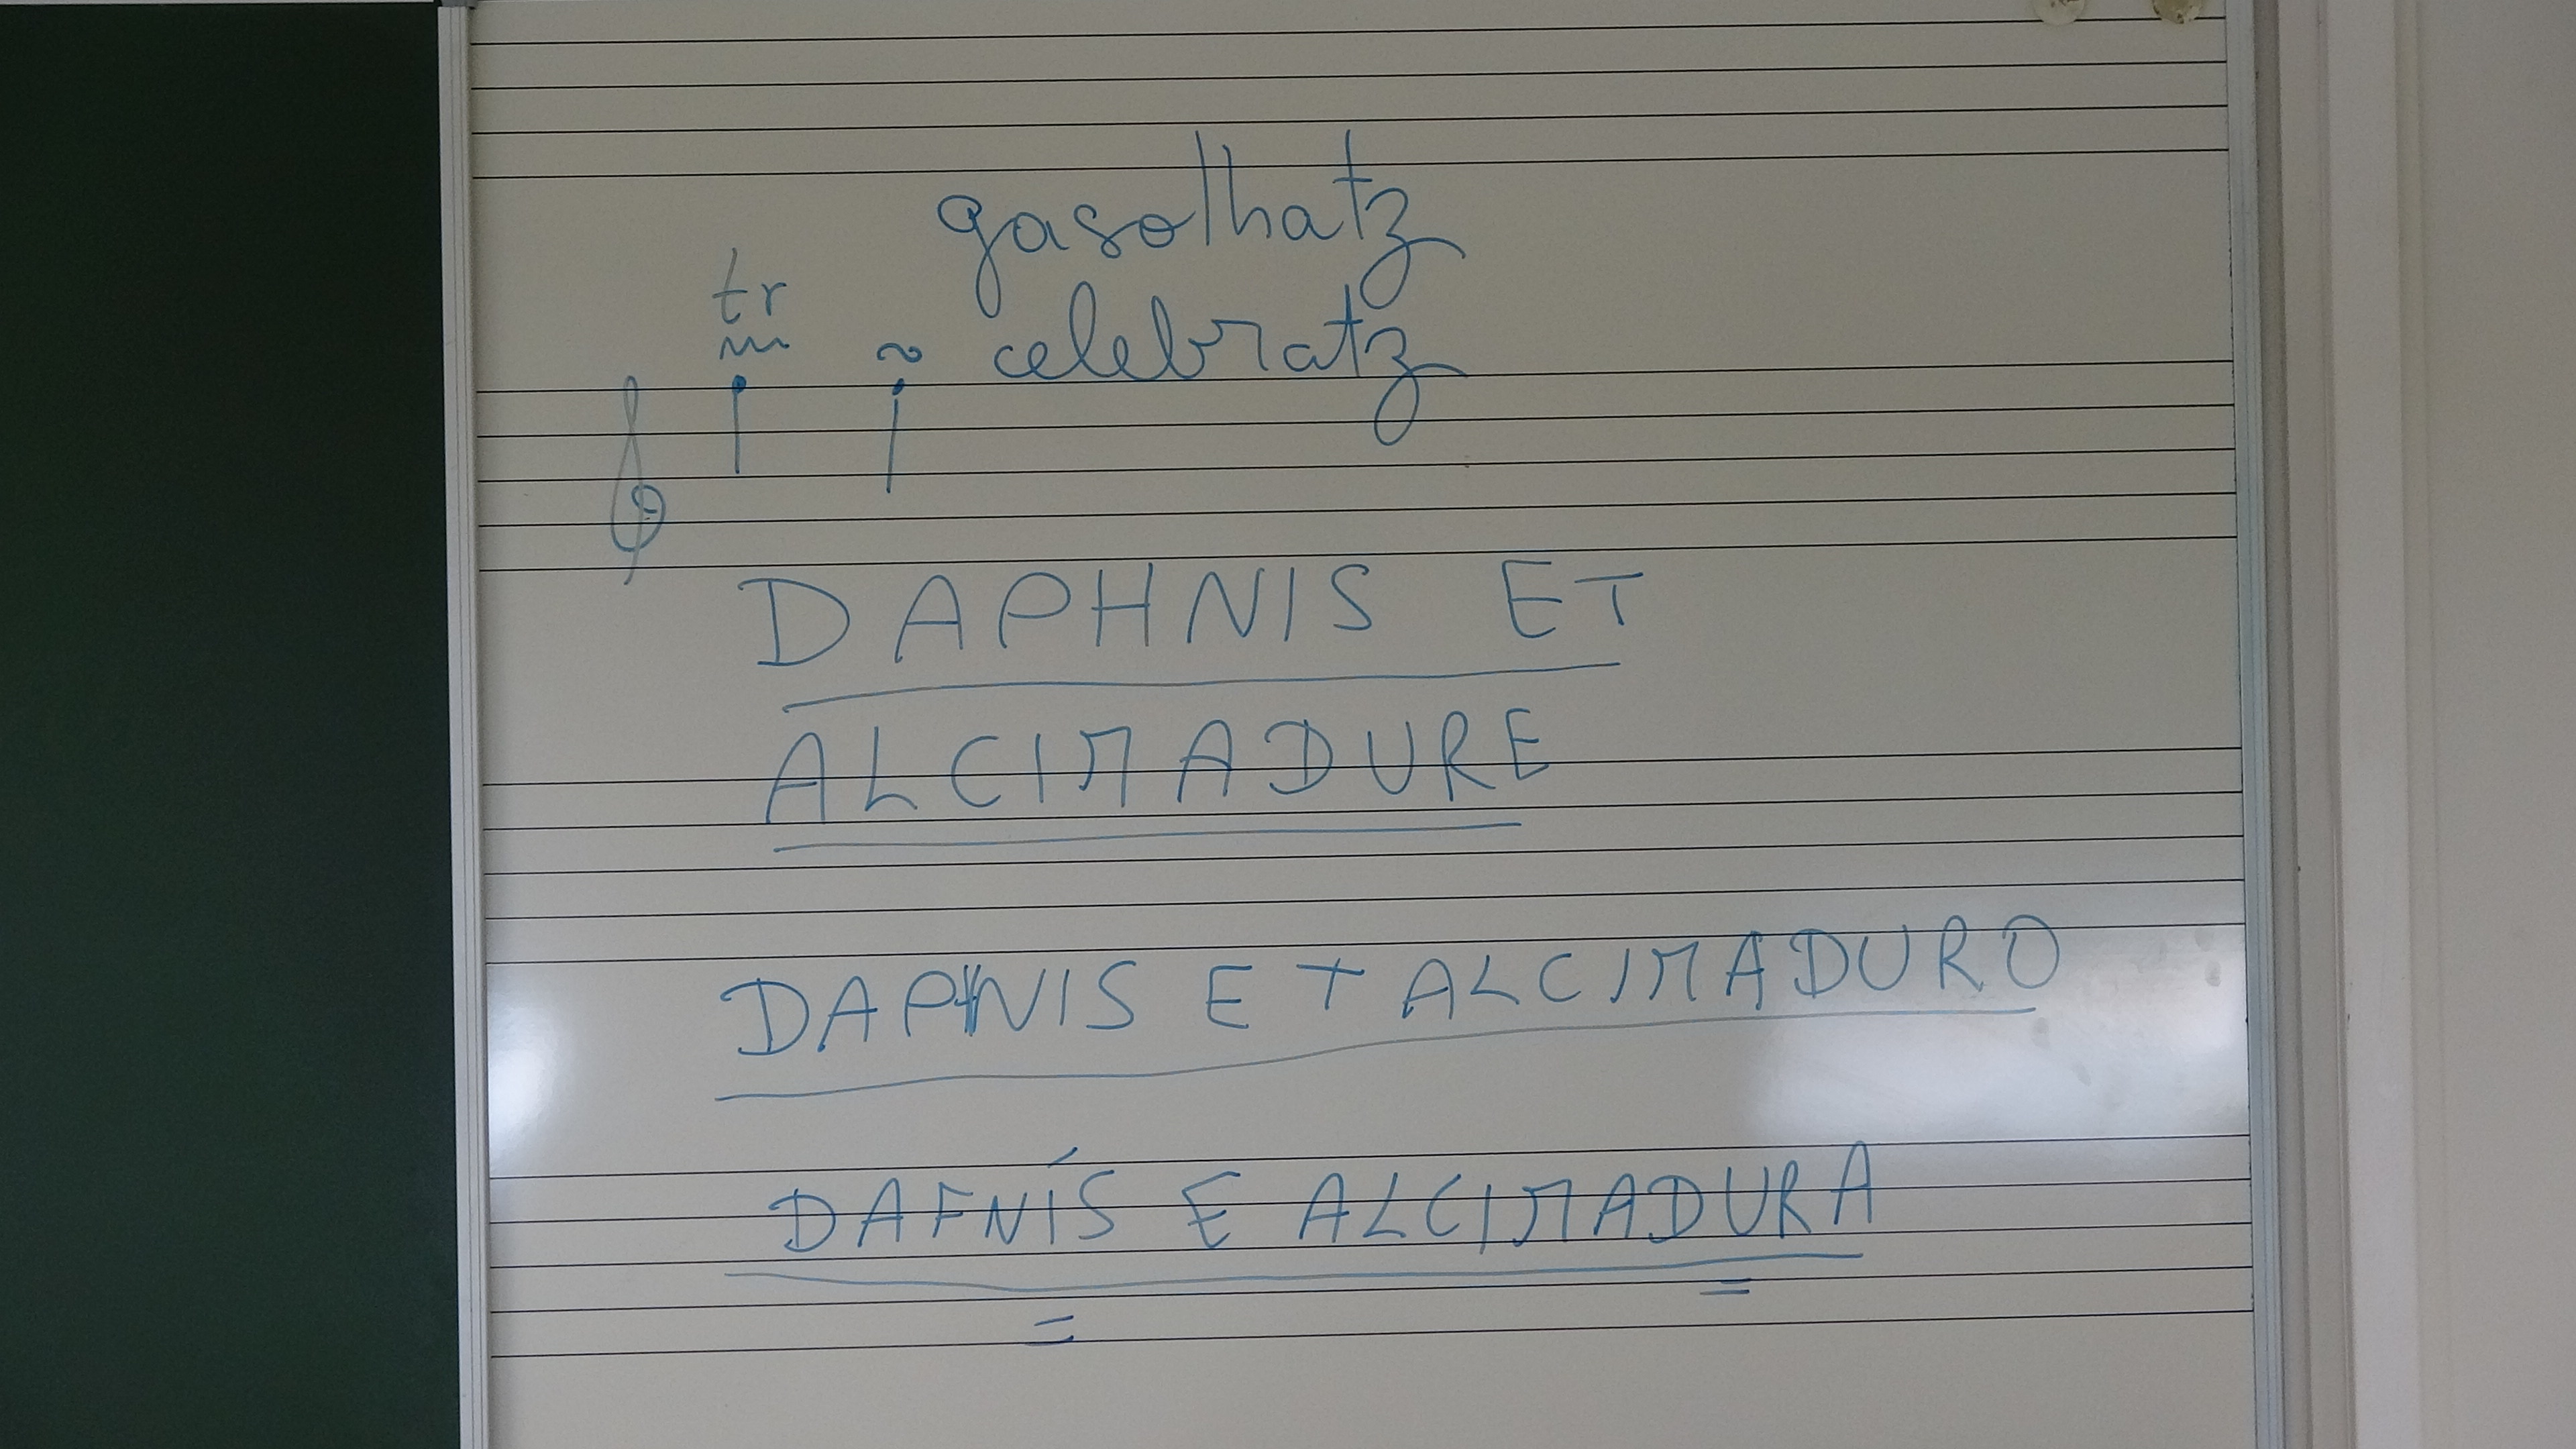 gasolhatz
tr
celebratz
DAPHNIS ET
ALCIMADURE
DAPHNIS ET ALCIMADURO
DAFNÍS E ALCIMADURA